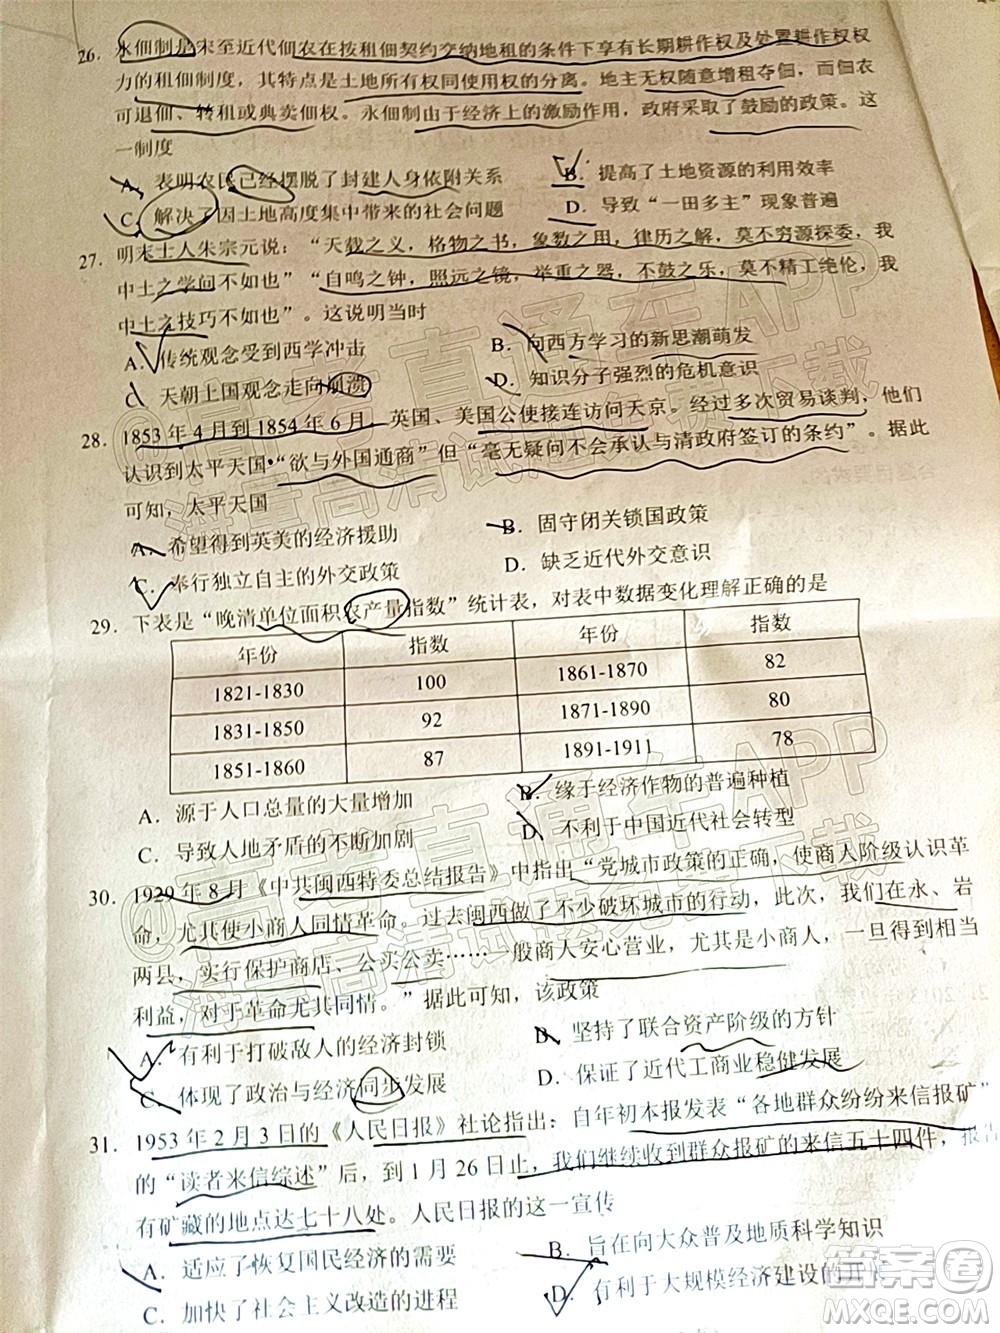 26. 永佃制是宋至近代佃农在按租佃契约交纳地租的条件下享有长期耕作权及处置耕作权权
力的租佃制度，其特点是土地所有权同使用权的分离。地主无权随意增租夺佃，而佃农
可退佃、转租或典卖佃权。永佃制由于经济上的激励作用，政府采取了鼓励的政策。这
一制度
A. 表明农民已经摆脱了封建人身依附关系 B. 提高了土地资源的利用效率
C. 解决了因土地高度集中带来的社会问题 D. 导致“一田多主”现象普遍
27. 明末士人朱宗元说：“天载之义，格物之书，象数之用，律历之解，莫不穷源探委，我
中土之学问不如也”“自鸣之钟，照远之镜，举重之器，不鼓之乐，莫不精工绝伦，我
中土之技巧不如也”。这说明当时
A. 传统观念受到西学冲击 B. 向西方学习的新思潮萌发
C. 天朝上国观念走向崩溃 D. 知识分子强烈的危机意识
28. 1853 年 4 月到 1854 年 6 月，英国、美国公使接连访问天京。经过多次贸易谈判，他们
认识到太平天国“欲与外国通商”但“毫无疑问不会承认与清政府签订的条约”。据此
可知，太平天国
A. 希望得到英美的经济援助 B. 固守闭关锁国政策
C. 奉行独立自主的外交政策 D. 缺乏近代外交意识
29. 下表是“晚清单位面积农产量指数”统计表，对表中数据变化理解正确的是
年份 指数 年份 指数
1821-1830 100 1861-1870 82
1831-1850 92 1871-1890 80
1851-1860 87 1891-1911 78
A. 源于人口总量的大量增加 B. 缘于经济作物的普遍种植
C. 导致人地矛盾的不断加剧 D. 不利于中国近代社会转型
30. 1929 年 8 月《中共闽西特委总结报告》中指出“党城市政策的正确，使商人阶级认识革
命，尤其使小商人同情革命。过去闽西做了不少破坏城市的行动，此次，我们在永、岩
两县，实行保护商店、公买公卖……一般商人安心营业，尤其是小商人，一旦得到
利益，对于革命尤其同情。”据此可知，该政策
A. 有利于打破敌人的经济封锁 B. 坚持了联合资产阶级的方针
C. 体现了政治与经济同步发展 D. 保证了近代工商业稳健发展
31. 1953 年 2 月 3 日的《人民日报》社论指出：自年初本报发表“各地群众纷纷来信报矿”
的“读者来信综述”后，到 1 月 26 日止，我们继续收到群众报矿的来信五十四件，报告
有矿藏的地点达七十八处。人民日报的这一宣传
A. 适应了恢复国民经济的需要 B. 旨在向大众普及地质科学知识
C. 加快了社会主义改造的进程 D. 有利于大规模经济建设的开
@高考直通车APP
海量高清试题免费下载
@高考直通车APP
海量高清试题免费下载
答案卷
MXQE.COM